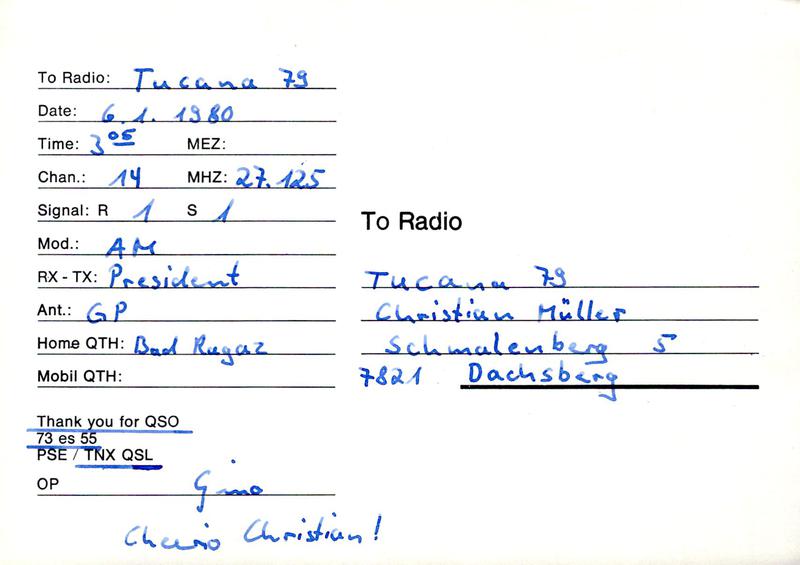 To Radio: Tucana 79
Date: 6.1.1980
Time: 3 05 MEZ:
Chan.: 14 MHZ: 27.125
Signal: R 1 S 1
Mod.: AM
RX - TX: President
Ant.: GP
Home QTH: Bad Ragaz
Mobil QTH:
Thank you for QSO
73 es 55
PSE / TNX QSL
OP Gino
Cheerio Christian!
To Radio
Tucana 79
Christian Müller
Schmalenberg 5
7821 Dachsberg